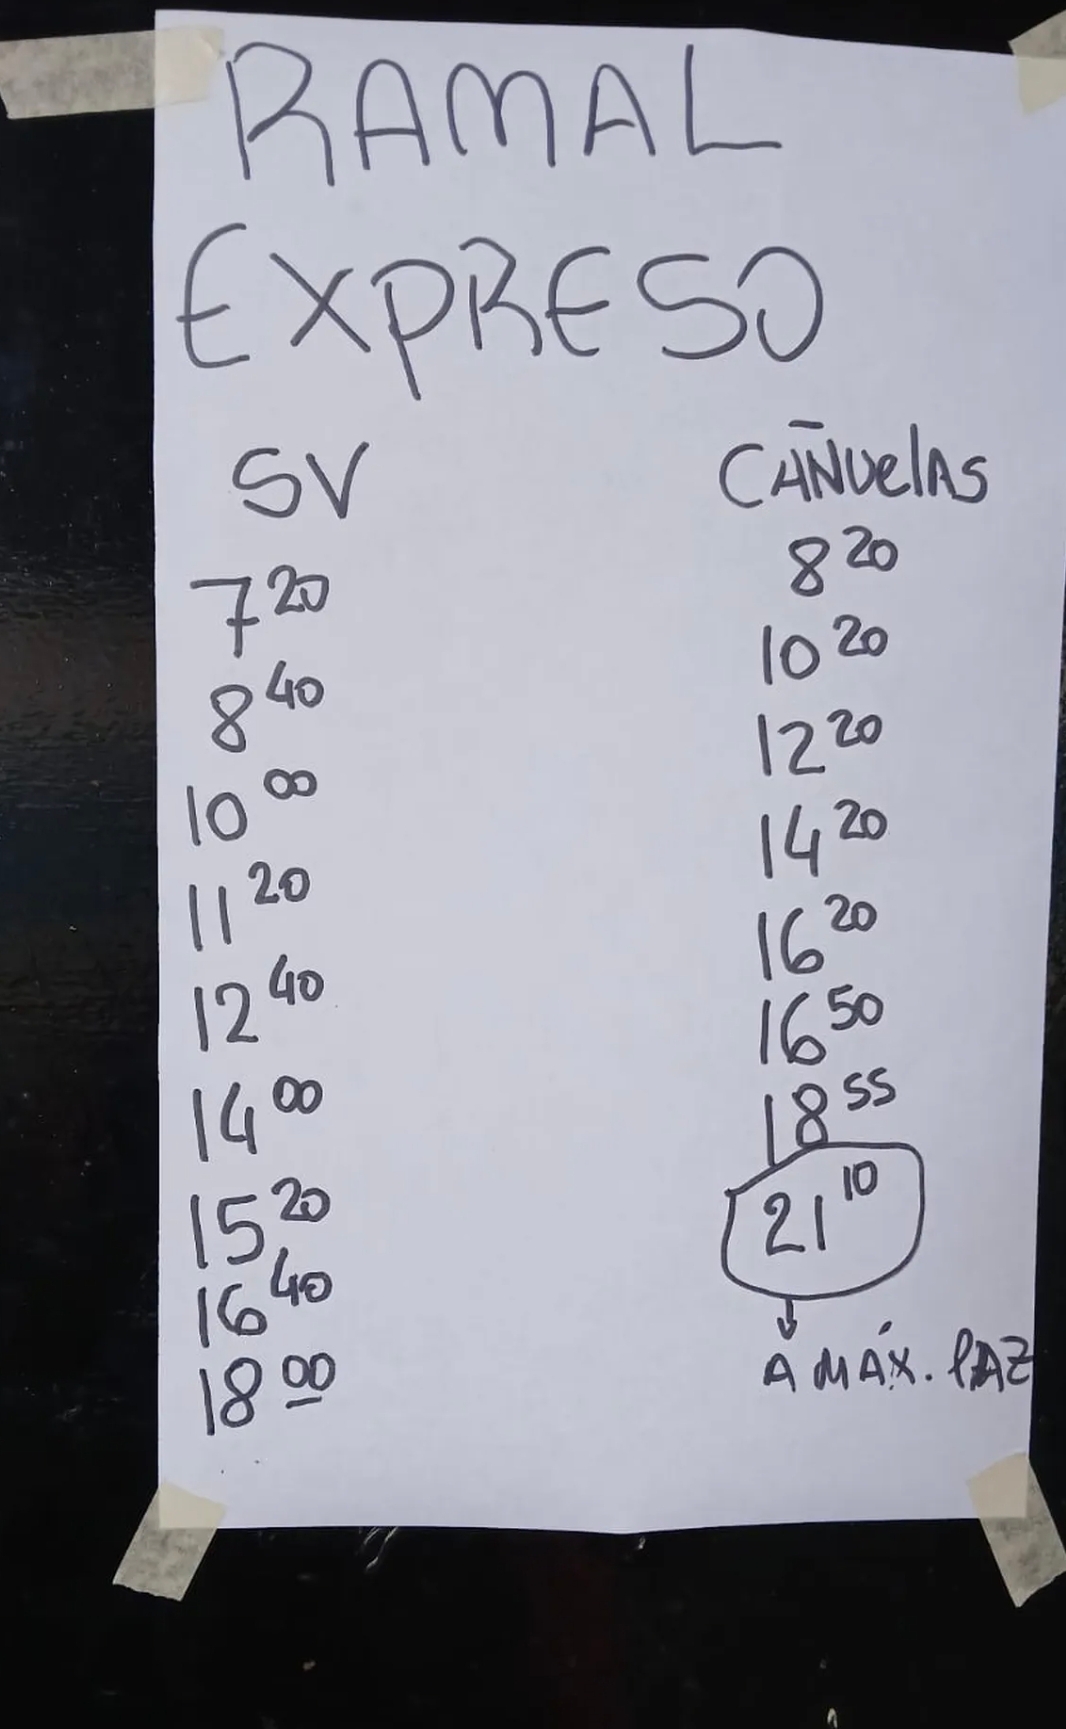 RAMAL
EXPRESO
SV
7 20
8 40
10 00
11 20
12 40
14 00
15 20
16 40
18 00
CAÑUelAS
8 20
10 20
12 20
14 20
16 20
16 50
18 55
21 10
A MÁX. PAZ